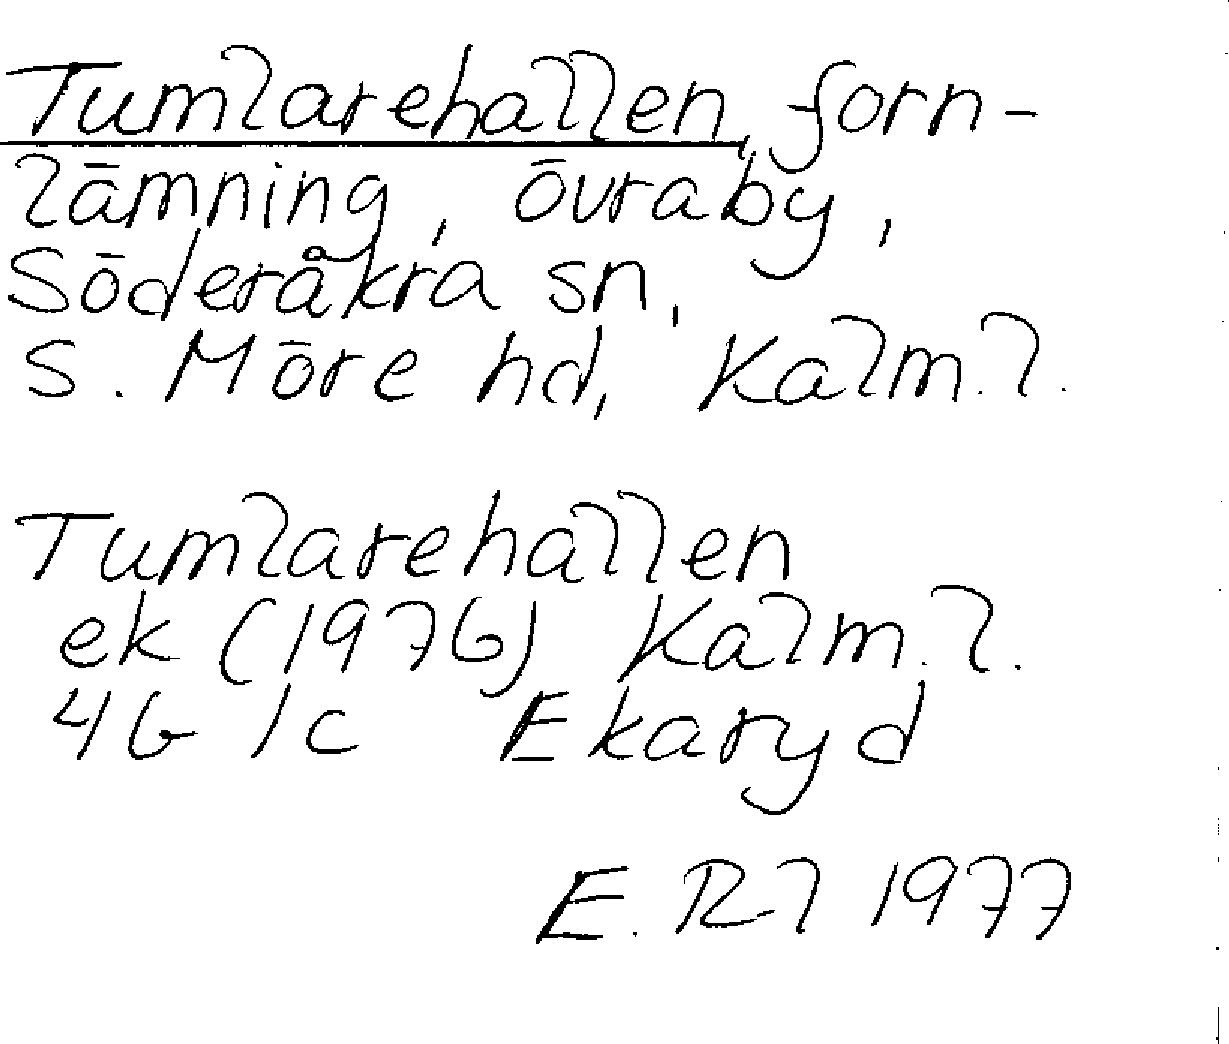 Tumlarehallen, forn-
lämning, Övraby,
Söderåkra sn,
S. Möre hd, Kalm. l.
Tumlarehallen
ek (1976) Kalm. l.
4G 1c Ekaryd
E. Rl 1977